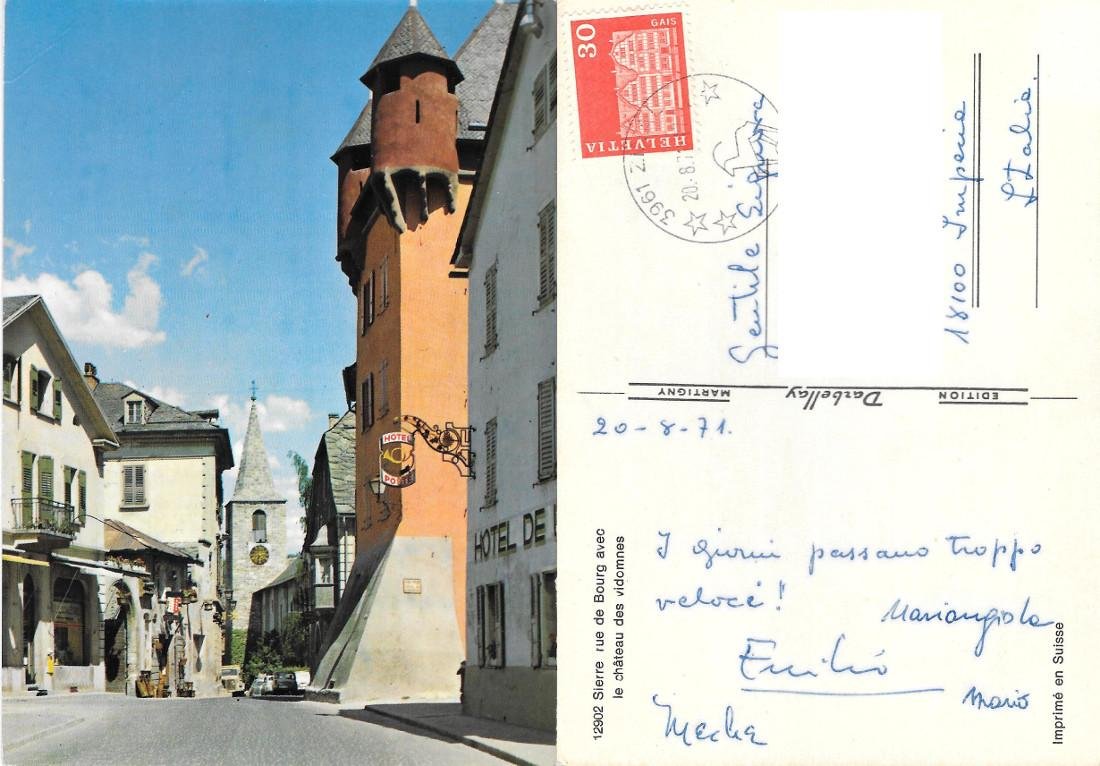 HOTEL
POSTE
HOTEL DE
30
GAIS
HELVETIA
3961
20.-8.7
Gentile Signora
18100 Imperia
Italia.
EDITION Darbellay MARTIGNY
20-8-71.
I giorni passano troppo
veloci!
Mariangiola
Emilio
Mario
12902 Sierre rue de Bourg avec
le château des vidomnes
Imprimé en Suisse